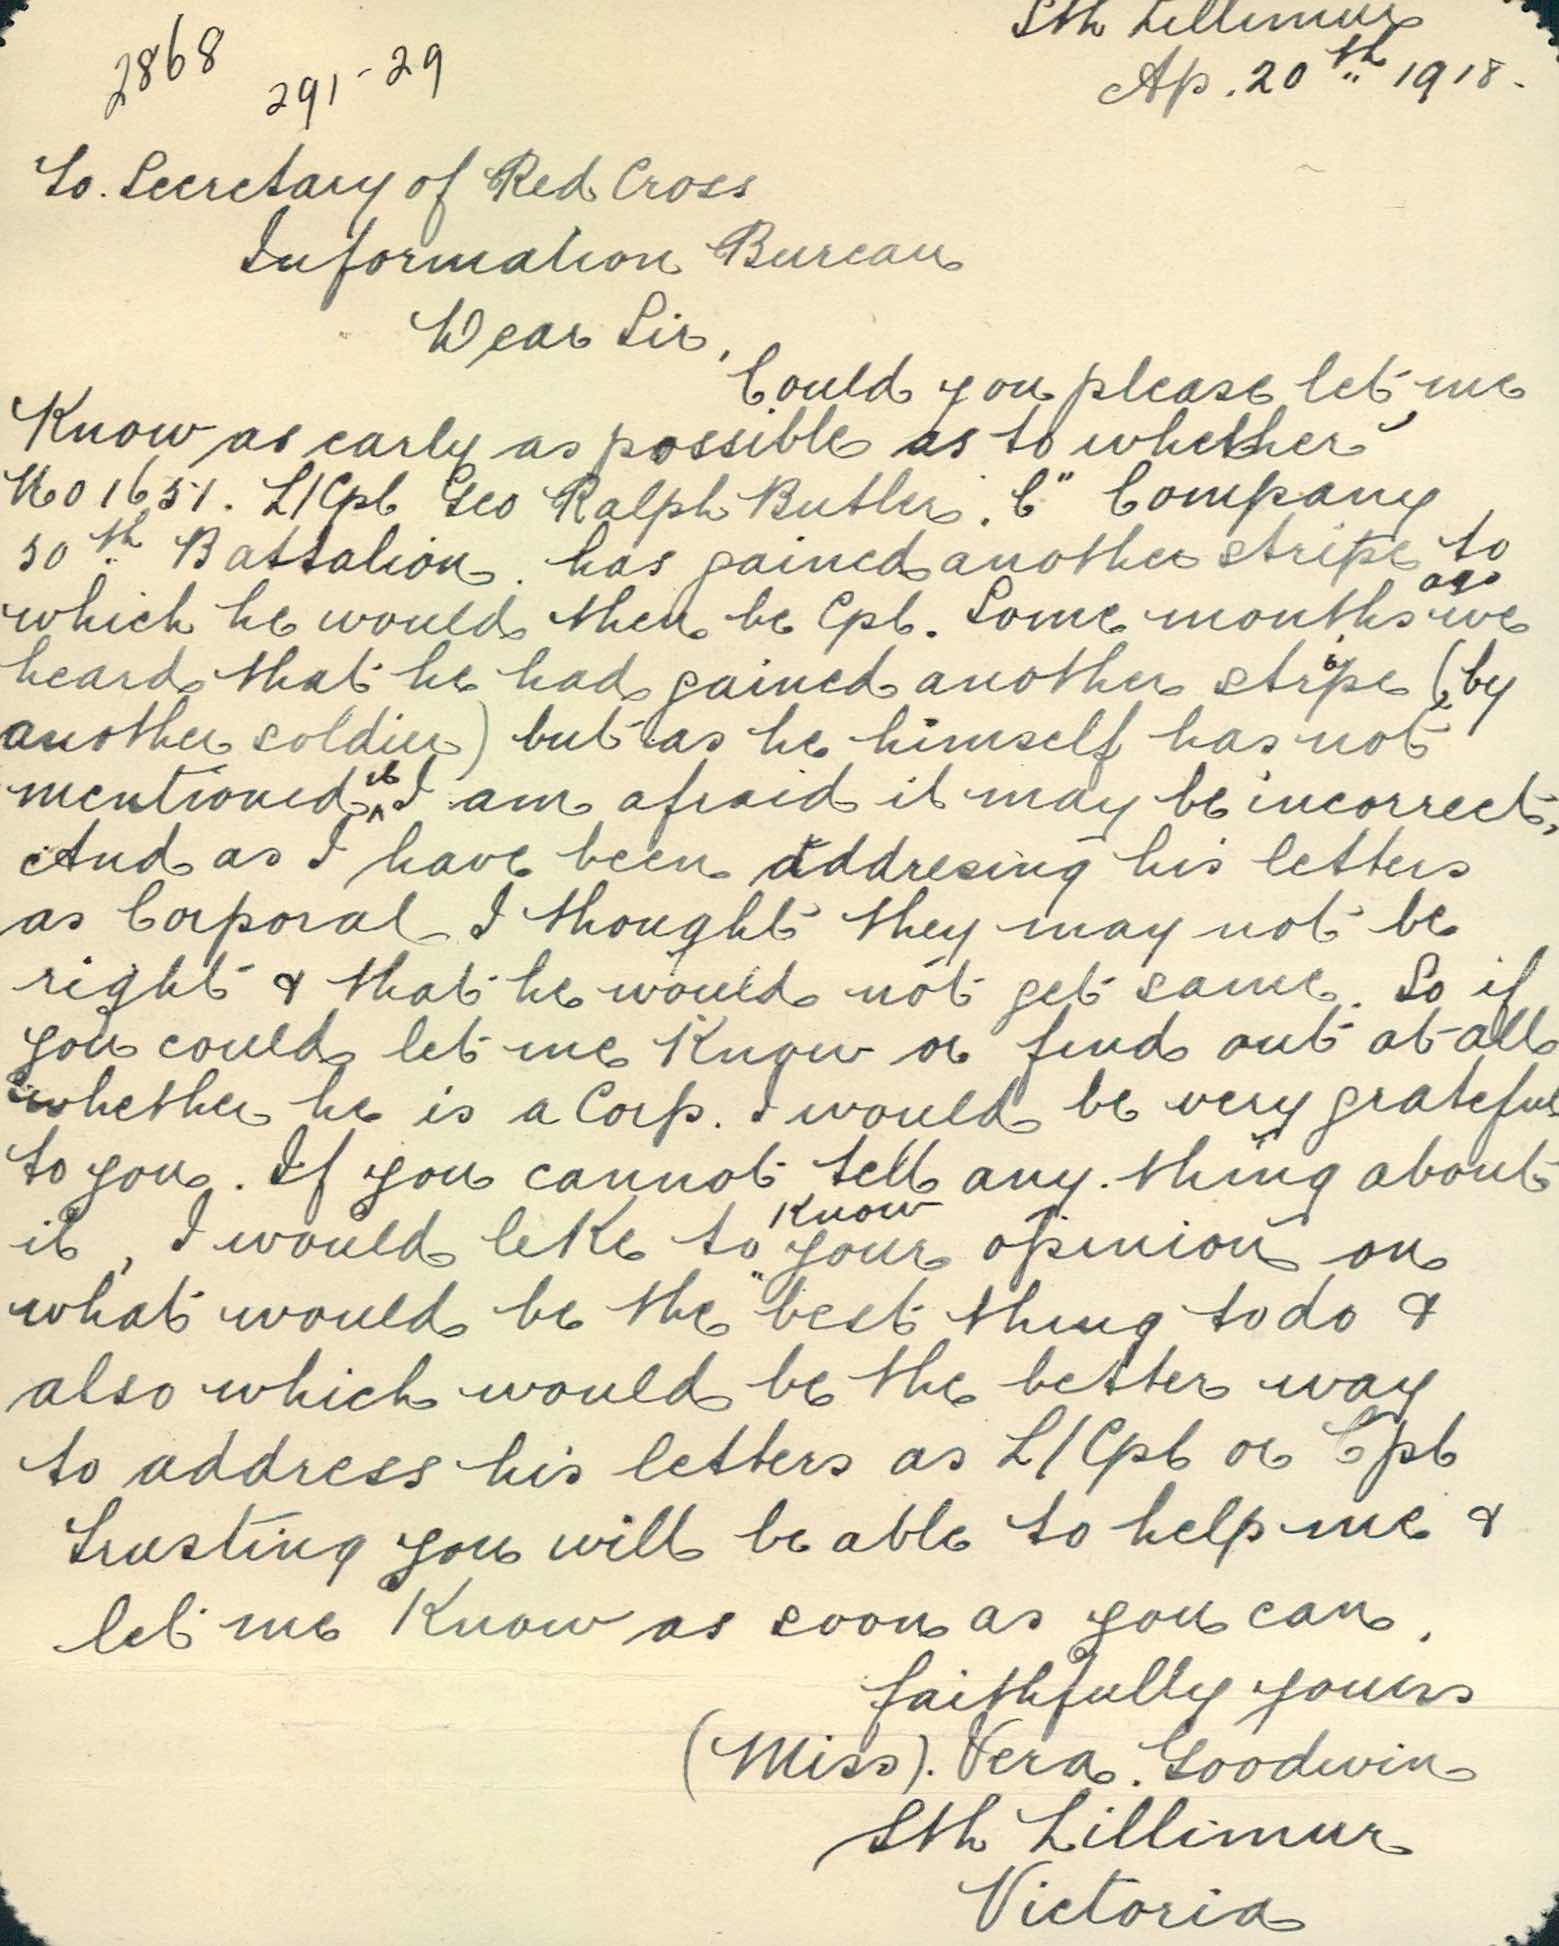 2868
291-29
Sth Lillimur
Ap. 20th 1918.
To. Secretary of Red Cross
Information Bureau
Dear Sir,
Could you please let me
Know as early as possible as to whether
No 1651. L/Cpl Geo Ralph Butler. "C" Company
50th Battalion. has gained another stripe to
which he would then be Cpl. Some months ago we
heard that he had gained another stripe (by
another soldier) but as he himself has not
mentioned it I am afraid it may be incorrect,
And as I have been addresing his letters
as Corporal I thought they may not be
right & that he would not get same. So if
you could let me Know or find out at all
whether he is a Corp. I would be very grateful
to you. If you cannot tell any.thing about
it, I would like to Know your opinion on
what would be the best thing to do &
also which would be the better way
to address his letters as L/Cpl or Cpl
Trusting you will be able to help me &
let me Know as soon as you can.
faithfully yours
(Miss). Vera. Goodwin
Sth Lillimur
Victoria